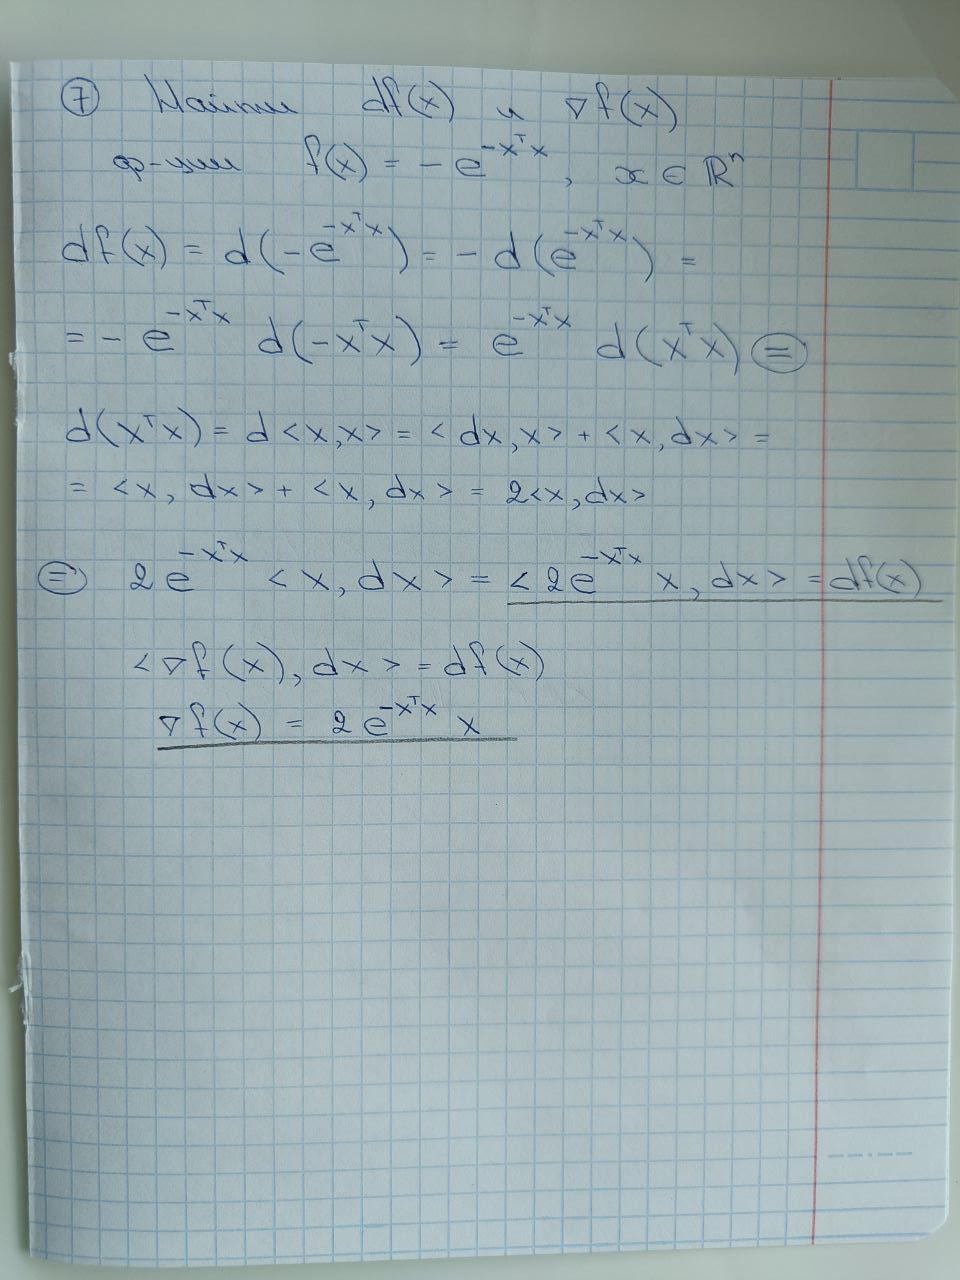 ⑦ Найти df(x) и ∇f(x)
ф-ции f(x) = - e^{-xᵀx}, x ∈ ℝⁿ
df(x) = d(-e^{-xᵀx}) = - d(e^{-xᵀx}) =
= - e^{-xᵀx} d(-xᵀx) = e^{-xᵀx} d(xᵀx) ⊜
d(xᵀx) = d<x,x> = <dx,x> + <x,dx> =
= <x, dx> + <x, dx> = 2<x,dx>
⊜ 2e^{-xᵀx} <x, dx> = <2e^{-xᵀx} x, dx> = df(x)
<∇f(x), dx> = df(x)
∇f(x) = 2 e^{-xᵀx} x